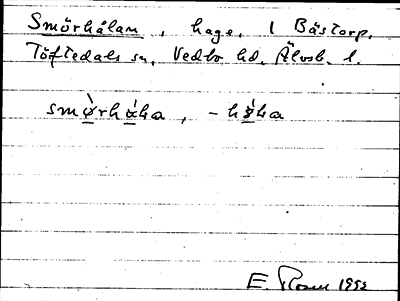 Smörhålan, hage, 1 Bästorp,
Töftedals sn, Vedbo hd, Älvsb. l.
smø̀rhǻha, -hǿha
E. Rosen 1952